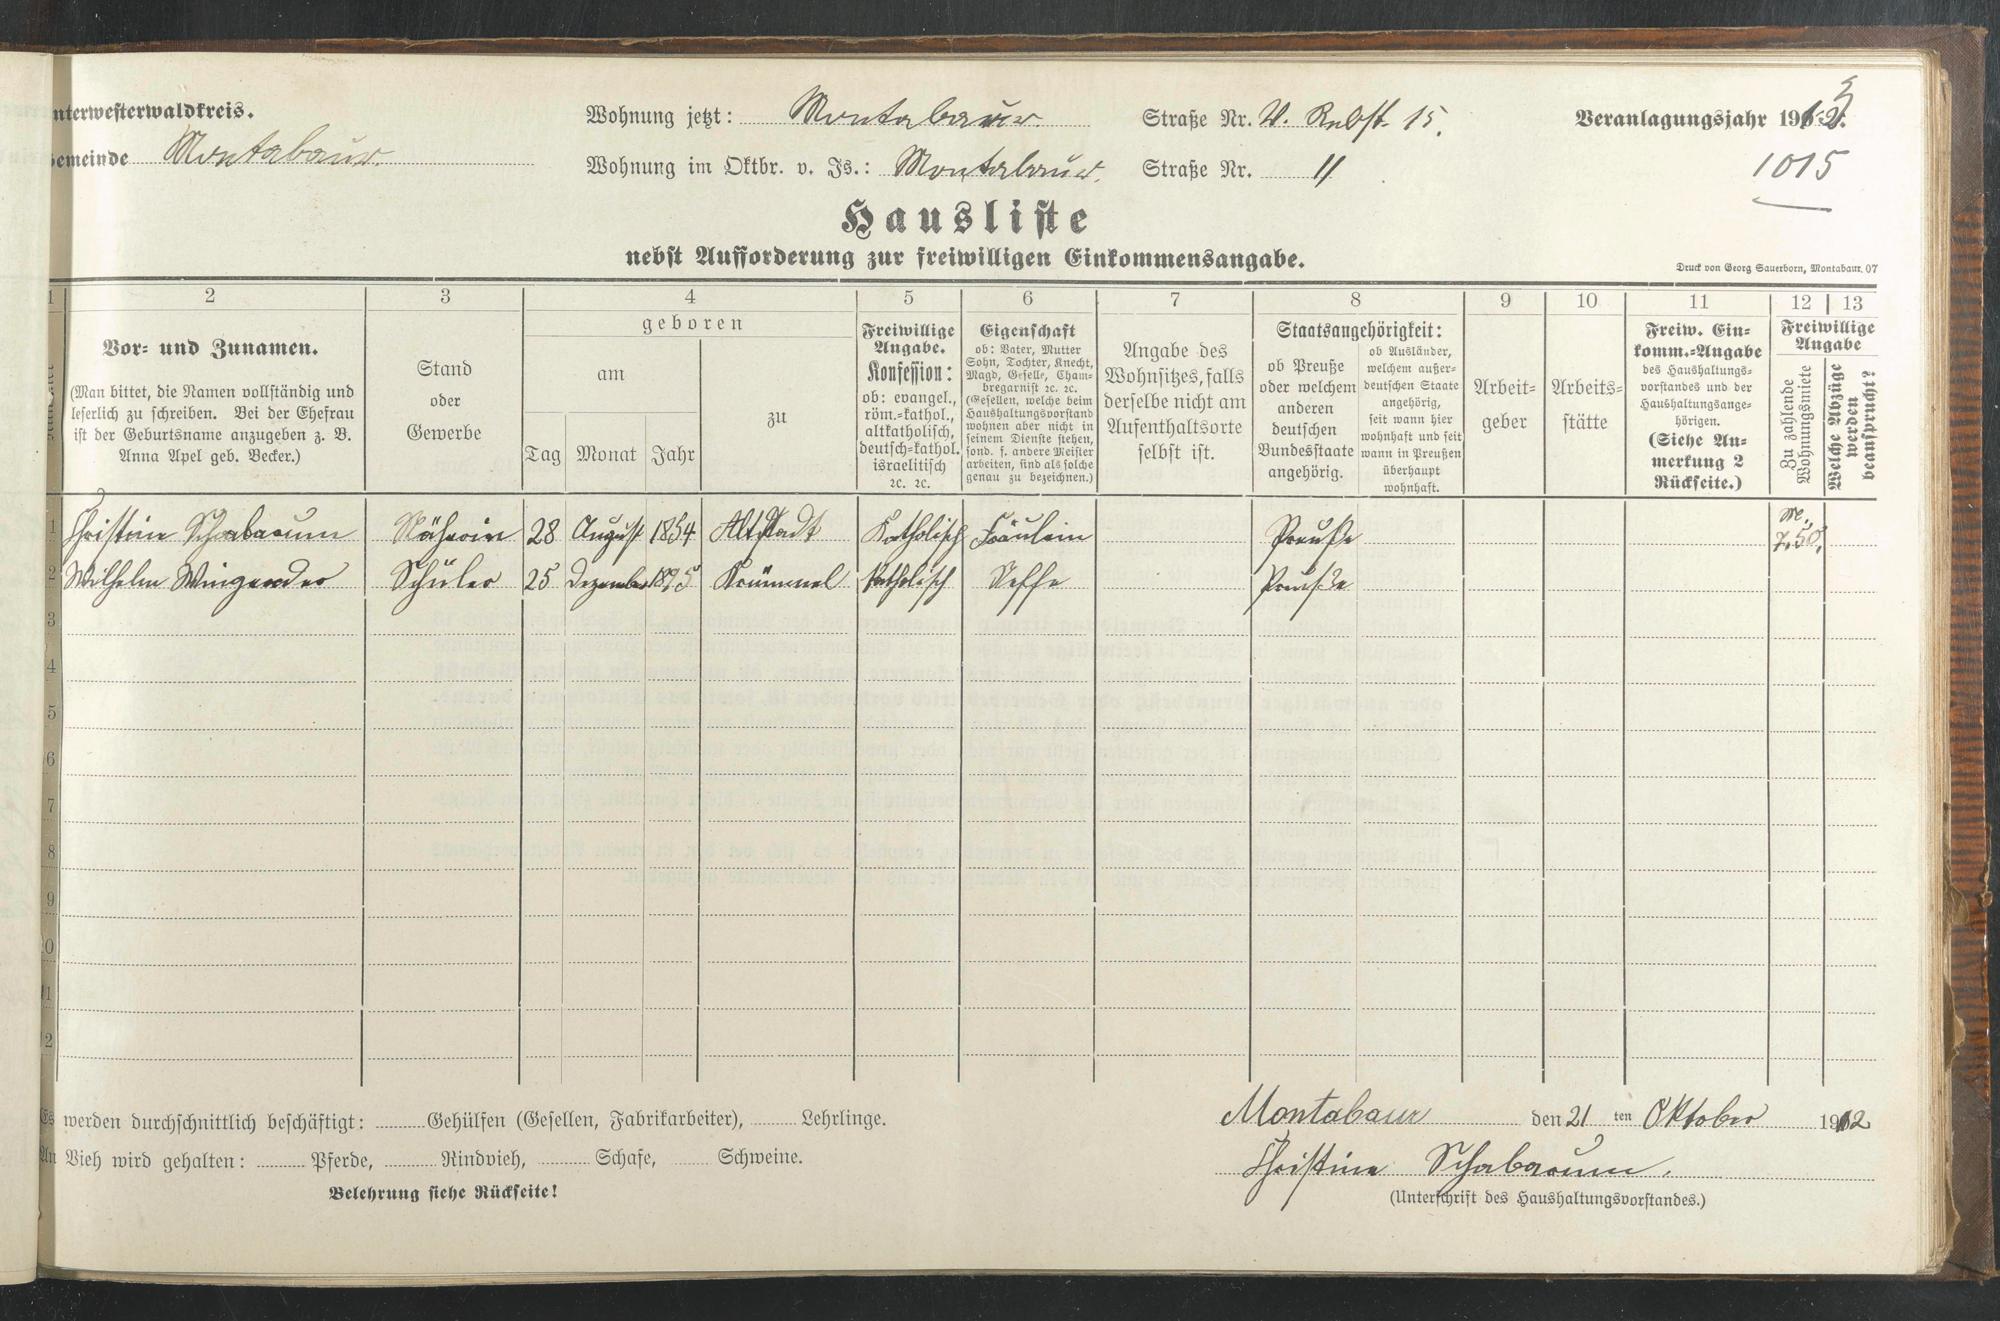 nterwesterwaldkreis.
Wohnung jetzt: Montabaur. Straße Nr. V. Rebst. 15.
Veranlagungsjahr 1913
emeinde Montabaur.
Wohnung im Oktbr. v. Js.: Montabaur. Straße Nr. "
1015
Hausliste
nebst Aufforderung zur freiwilligen Einkommensangabe.
Druck von Georg Sauerborn, Montabaur. 07
1 2 3 4 5 6 7 8 9 10 11 12 13
Vor- und Zunamen.
(Man bittet, die Namen vollständig und
leserlich zu schreiben. Bei der Ehefrau
ist der Geburtsname anzugeben z. B.
Anna Apel geb. Becker.)
Stand
oder
Gewerbe
geboren
am
Tag Monat Jahr
zu
Freiwillige
Angabe.
Konfession:
ob: evangel.,
röm.-kathol.,
altkatholisch,
deutsch-kathol.
israelitisch
2c. 2c.
Eigenschaft
ob: Vater, Mutter
Sohn, Tochter, Knecht,
Magd, Geselle, Cham-
bregarnist 2c. 2c.
(Gesellen, welche beim
Haushaltungsvorstand
wohnen aber nicht in
seinem Dienste stehen,
sond. f. andere Meister
arbeiten, sind als solche
genau zu bezeichnen.)
Angabe des
Wohnsitzes, falls
derselbe nicht am
Aufenthaltsorte
selbst ist.
Staatsangehörigkeit:
ob Preuße
oder welchem
anderen
deutschen
Bundesstaate
angehörig.
ob Ausländer,
welchem außer-
deutschen Staate
angehörig,
seit wann hier
wohnhaft und seit
wann in Preußen
überhaupt
wohnhaft.
Arbeit-
geber
Arbeits-
stätte
Freiw. Ein-
komm.-Angabe
des Haushaltungs-
vorstandes und der
Haushaltungsange-
hörigen.
(Siehe An-
merkung 2
Rückseite.)
Freiwillige
Angabe
Zu zahlende
Wohnungsmiete
Welche Abzüge
werden
beansprucht?
1 Christine Schabaum Näherin 28 August 1854 Altstadt Katholisch Fräulein Preuße M. 7,50,
2 Wilhelm Wingender Schüler 25 Dezember 1895 Krümmel Katholisch Neffe Preuße
3
4
5
6
7
8
9
10
11
12
Es werden durchschnittlich beschäftigt: Gehülfen (Gesellen, Fabrikarbeiter), Lehrlinge.
An Vieh wird gehalten: Pferde, Rindvieh, Schafe, Schweine.
Belehrung siehe Rückseite!
Montabaur den 21 ten Oktober 1912
Christine Schabaum.
(Unterschrift des Haushaltungsvorstandes.)